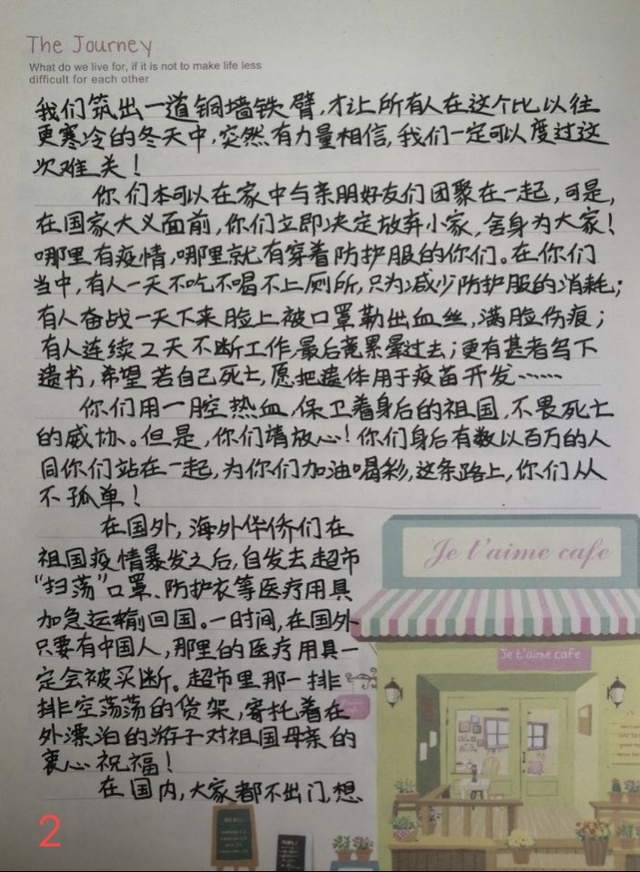 The Journey
What do we live for, if it is not to make life less
difficult for each other
我们筑出一道铜墙铁臂，才让所有人在这个比以往
更寒冷的冬天中，突然有力量相信，我们一定可以度过这
次难关！
你们本可以在家中与亲朋好友们团聚在一起，可是，
在国家大义面前，你们立即决定放弃小家，舍身为大家！
哪里有疫情，哪里就有穿着防护服的你们。在你们
当中，有人一天不吃不喝不上厕所，只为减少防护服的消耗；
有人奋战一天下来脸上被口罩勒出血丝，满脸伤痕；
有人连续2天不断工作，最后竟累晕过去；更有甚者写下
遗书，希望若自己死亡，愿把遗体用于疫苗开发……
你们用一腔热血，保卫着身后的祖国，不畏死亡
的威协。但是，你们请放心！你们身后有数以百万的人
同你们站在一起，为你们加油喝彩，这条路上，你们从
不孤单！
在国外，海外华侨们在
祖国疫情暴发之后，自发去超市
“扫荡”口罩、防护衣等医疗用具
加急运输回国。一时间，在国外
只要有中国人，那里的医疗用具一
定会被买断。超市里那一排
排空荡荡的货架，寄托着在
外漂泊的游子对祖国母亲的
衷心祝福！
在国内，大家都不出门，想
Je t'aime cafe
Je t'aime cafe
MENU
2